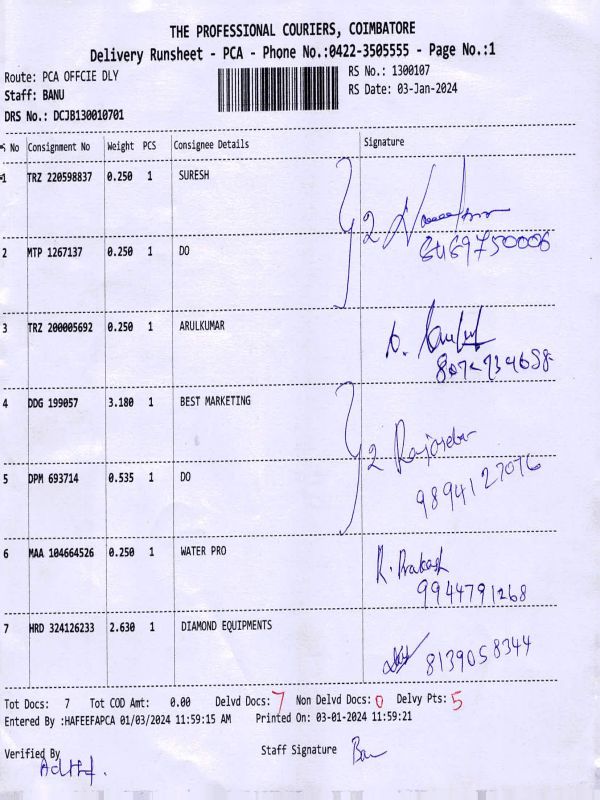 THE PROFESSIONAL COURIERS, COIMBATORE
Delivery Runsheet - PCA - Phone No.:0422-3505555 - Page No.:1
Route: PCA OFFCIE DLY
RS No.: 1300107
Staff: BANU
RS Date: 03-Jan-2024
DRS No.: DCJB130010701
S No Consignment No Weight PCS Consignee Details Signature
1 TRZ 220598837 0.250 1 SURESH
2
2 MTP 1267137 0.250 1 DO
3 TRZ 200005692 0.250 1 ARULKUMAR
4 DDG 199057 3.180 1 BEST MARKETING
2
5 DPM 693714 0.535 1 DO
9894127076
6 MAA 104664526 0.250 1 WATER PRO
R. Prakash
9944791268
7 HRD 324126233 2.630 1 DIAMOND EQUIPMENTS
8139058344
Tot Docs: 7 Tot COD Amt: 0.00 Delvd Docs: 7 Non Delvd Docs: 0 Delvy Pts: 5
Entered By :HAFEEFAPCA 01/03/2024 11:59:15 AM Printed On: 03-01-2024 11:59:21
Verified By
Staff Signature